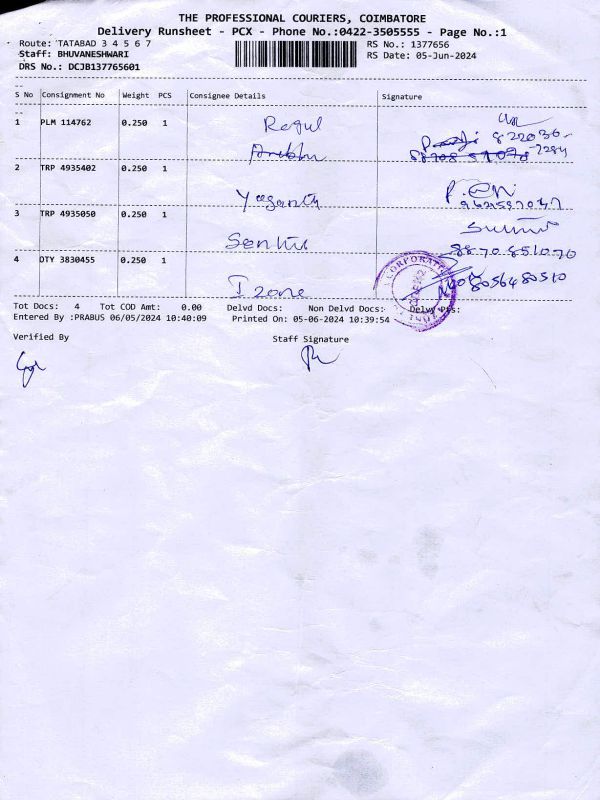 THE PROFESSIONAL COURIERS, COIMBATORE
Delivery Runsheet - PCX - Phone No.:0422-3505555 - Page No.:1
Route: TATABAD 3 4 5 6 7
RS No.: 1377656
Staff: BHUVANESHWARI
RS Date: 05-Jun-2024
DRS No.: DCJB137765601
S No Consignment No Weight PCS Consignee Details Signature
1 PLM 114762 0.250 1 Regul
822036-
7284
2 TRP 4935402 0.250 1
Yuganth P.
3 TRP 4935050 0.250 1
Senthil 8870851070
4 DTY 3830455 1
Izone 8056480510
CORPORATE
Tot Docs: 4 Tot COD Amt: 0.00 Delvd Docs: Non Delvd Docs: Delvy Pcs:
Entered By :PRABUS 06/05/2024 10:40:09 Printed On: 05-06-2024 10:39:54
Verified By Staff Signature